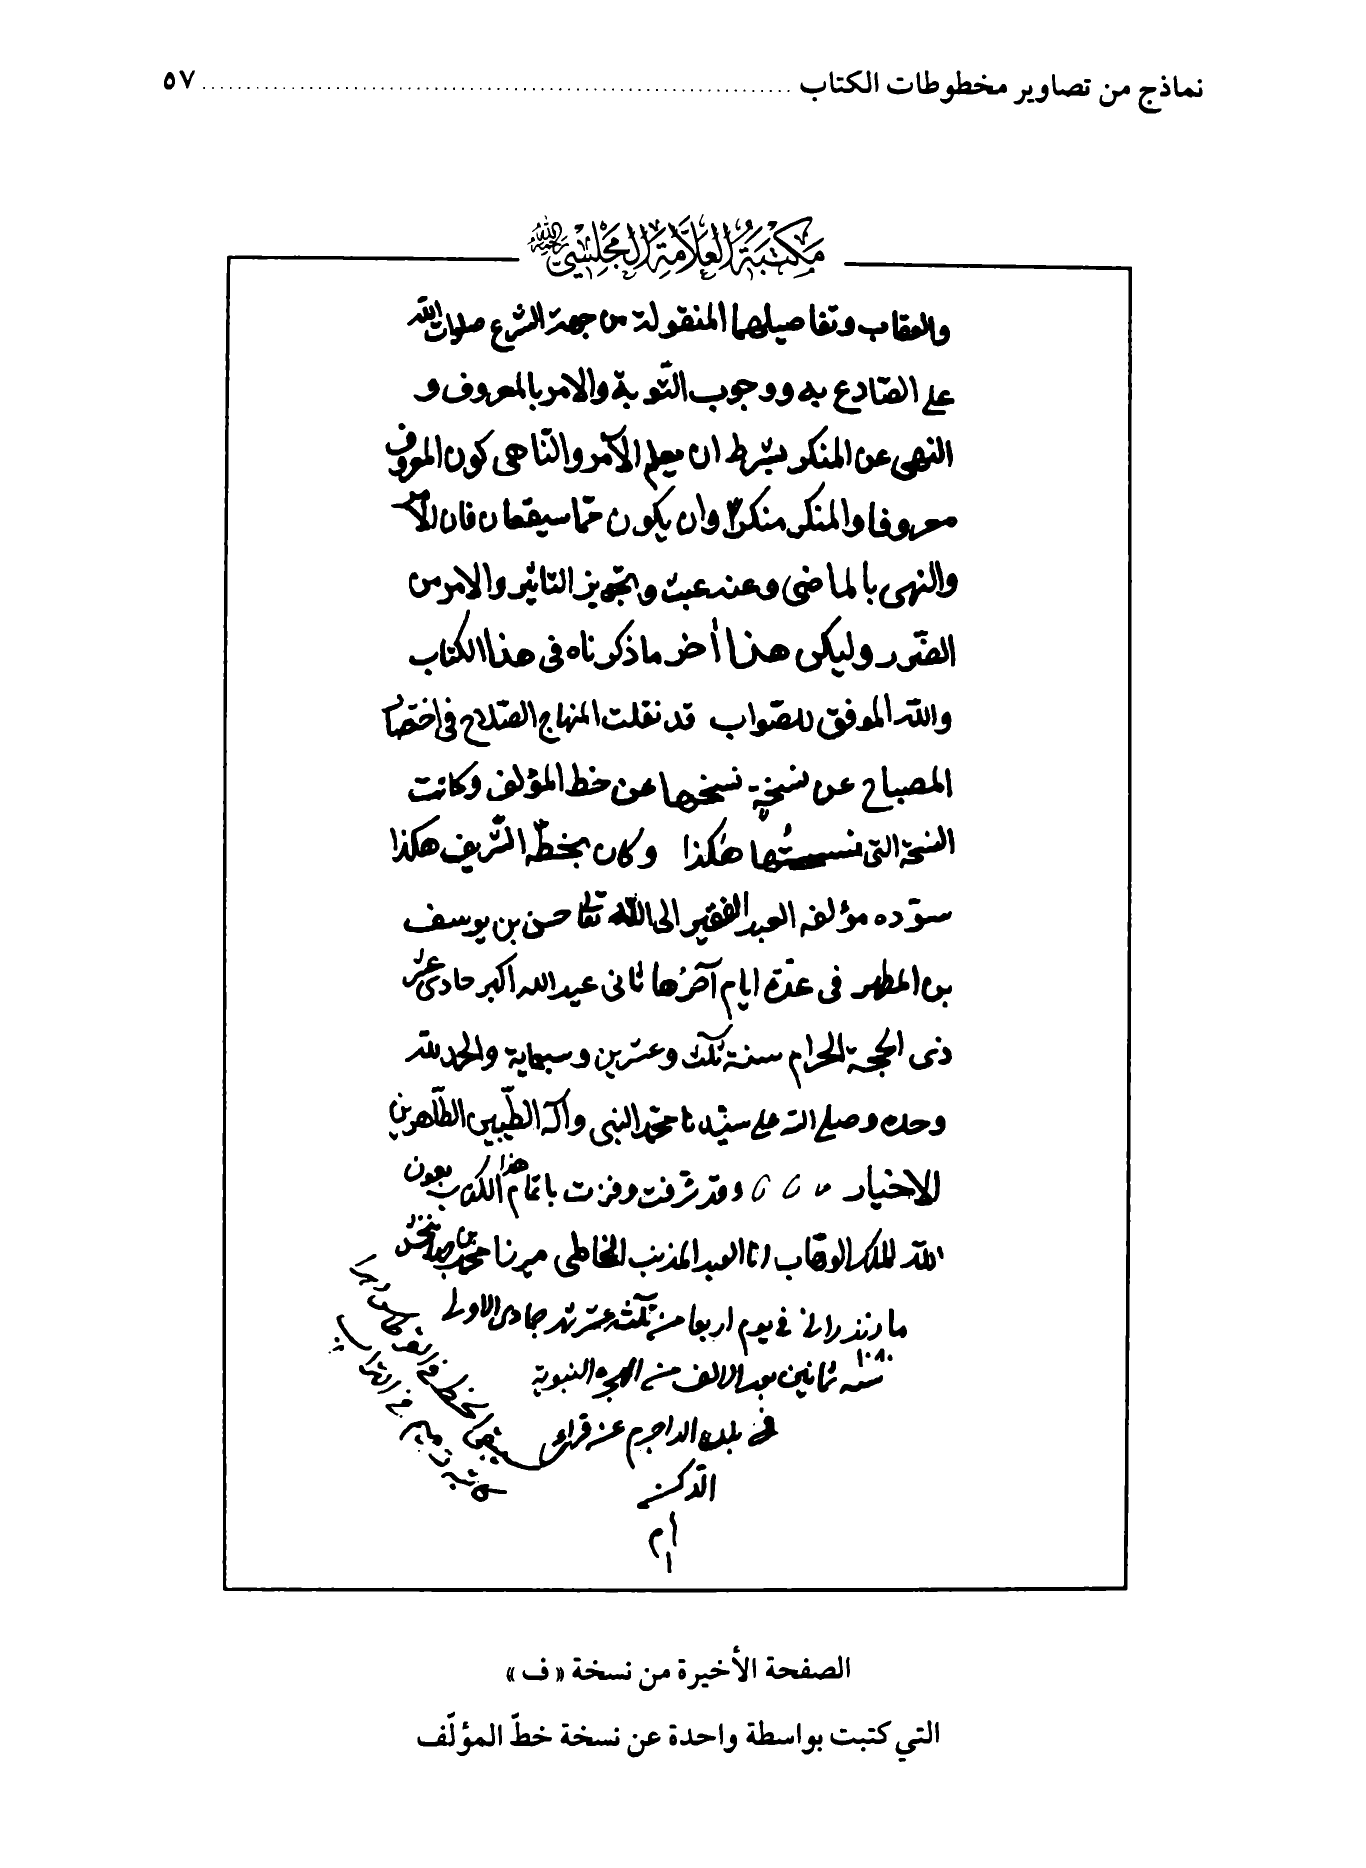 نماذج من تصاوير مخطوطات الكتاب ........................................ ٥٧
مكتبة العلامة المجلسي رحمه الله
والعقاب وتفاصيلهما المنقولة من جهة الشرع صلوات الله
على الصّادع به ووجوب التّوبة والامر بالمعروف و
النهى عن المنكر بشرط ان يعلم الآمر والنّاهى كون المعروف
معروفا والمنكر منكرا وان يكون ممّا سيقعان فان الأمر
والنهى بالماضى وعنه عبث وتجويز التاثير والامن من
الضّرر وليكن هذا أخر ما ذكرناه فى هذا الكتاب
والله الموفق للصّواب قد نقلت المنهاج الصّلاح فى اختصار
المصباح عن نسخة نسخها عن خط المؤلف وكانت
النسخة التى نسختها هكذا وكان بخطّه الشّريف هكذا
سوّده مؤلفه العبد الفقير الى الله تعالى حسن بن يوسف
بن المطهر فى عدّة ايام آخرُها ثانى عيد الله اكبر حادى عشر
ذى الحجة الحرام سنة ثلث وعشرين وسبعماية والحمد لله
وحده وصلى الله على سيّدنا محمّد النبى وآله الطّيبين الطّاهرين
الاخيار وقد شرفت وفزت باتمام هذا الكتاب بعون
الله الملك الوهاب انا العبد المذنب الخاطى ميرزا محمد بن
مازندرانى فى يوم اربعا من ثلثة عشر شهر جمادى الاولى
١٠٨٠
سنه ثمانين بعد الالف من الهجرة النبوية
فى بلدة
الدكن
يبقى الخط فى القرطاس دهرا
كاتبه رميم فى التراب
الصفحة الأخيرة من نسخة « ف »
التي كتبت بواسطة واحدة عن نسخة خطّ المؤلّف